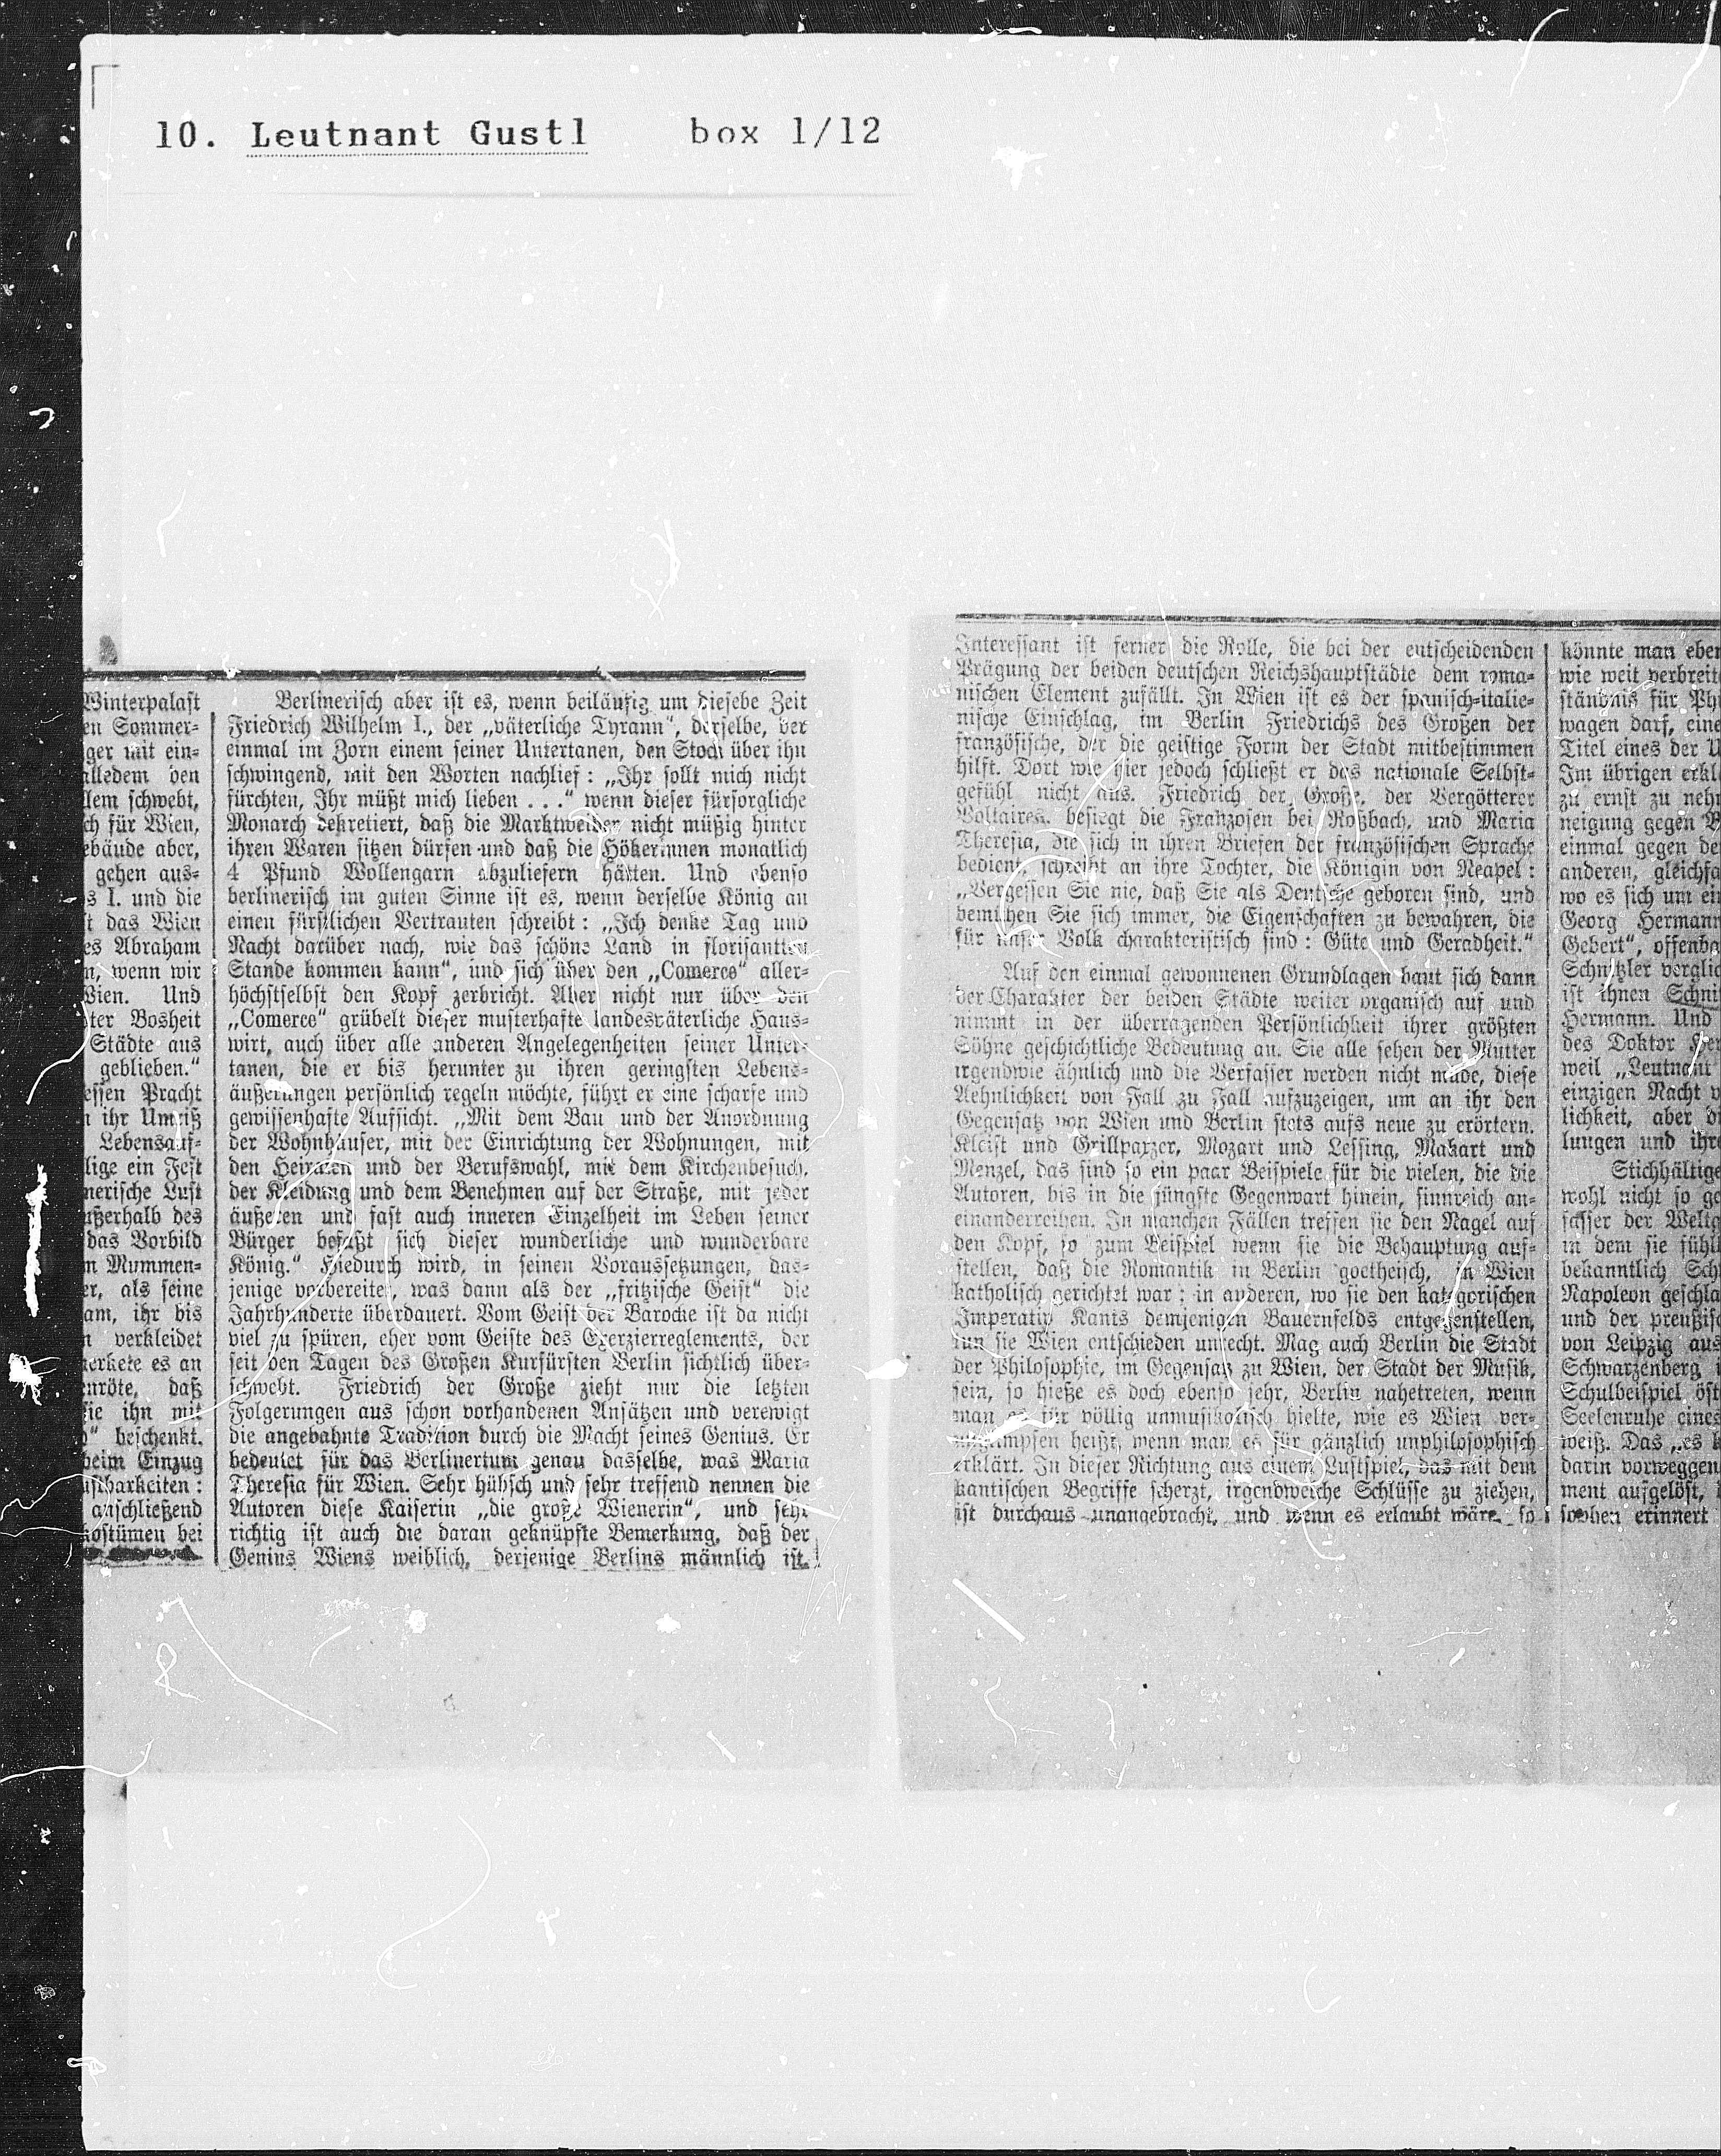 10. Leutnant Gustl box 1/12
Winterpalast
en Sommer-
ger mit ein-
alledem den
llem schwebt,
ch für Wien,
ebäude aber,
gehen aus-
s I. und die
t das Wien
es Abraham
n, wenn wir
Wien. Und
ter Bosheit
Städte aus
geblieben."
essen Pracht
n ihr Umriß
Lebensauf-
lige ein Fest
nerische Lust
ußerhalb des
das Vorbild
n Mummen-
er, als seine
am, ihr bis
n verkleidet
merkete es an
enröte, daß
sie ihn mit
" beschenkt.
beim Einzug
ustbarkeiten:
anschließend
ostümen bei
Berlinerisch aber ist es, wenn beiläufig um diesebe Zeit
Friedrich Wilhelm I., der „väterliche Tyrann", derselbe, der
einmal im Zorn einem seiner Untertanen, den Stock über ihn
schwingend, mit den Worten nachlief: „Ihr sollt mich nicht
fürchten, Ihr müßt mich lieben . . ." wenn dieser fürsorgliche
Monarch dekretiert, daß die Marktweiber nicht müßig hinter
ihren Waren sitzen dürfen und daß die Hökerinnen monatlich
4 Pfund Wollengarn abzuliefern hätten. Und ebenso
berlinerisch im guten Sinne ist es, wenn derselbe König an
einen fürstlichen Vertrauten schreibt: „Ich denke Tag und
Nacht darüber nach, wie das schöne Land in florisanten
Stande kommen kann", und sich über den „Comerce" aller-
höchstselbst den Kopf zerbricht. Aber nicht nur über den
„Comerce" grübelt dieser musterhafte landesväterliche Haus-
wirt, auch über alle anderen Angelegenheiten seiner Unter-
tanen, die er bis herunter zu ihren geringsten Lebens-
äußerungen persönlich regeln möchte, führt er eine scharfe und
gewissenhafte Aufsicht. „Mit dem Bau und der Anordnung
der Wohnhäuser, mit der Einrichtung der Wohnungen, mit
den Heiraten und der Berufswahl, mit dem Kirchenbesuch,
der Kleidung und dem Benehmen auf der Straße, mit jeder
äußeren und fast auch inneren Einzelheit im Leben seiner
Bürger befaßt sich dieser wunderliche und wunderbare
König." Hiedurch wird, in seinen Voraussetzungen, das-
jenige vorbereitet, was dann als der „fritzische Geist" die
Jahrhunderte überdauert. Vom Geist der Barocke ist da nicht
viel zu spüren, eher vom Geiste des Exerzierreglements, der
seit den Tagen des Großen Kurfürsten Berlin sichtlich über-
schwebt. Friedrich der Große zieht nur die letzten
Folgerungen aus schon vorhandenen Ansätzen und verewigt
die angebahnte Tradition durch die Macht seines Genius. Er
bedeutet für das Berlinertum genau dasselbe, was Maria
Theresia für Wien. Sehr hübsch und sehr treffend nennen die
Autoren diese Kaiserin „die große Wienerin", und sehr
richtig ist auch die daran geknüpfte Bemerkung, daß der
Genius Wiens weiblich, derjenige Berlins männlich ist.
Interessant ist ferner die Rolle, die bei der entscheidenden
Prägung der beiden deutschen Reichshauptstädte dem roma-
nischen Element zufällt. In Wien ist es der spanisch-italie-
nische Einschlag, im Berlin Friedrichs des Großen der
französische, der die geistige Form der Stadt mitbestimmen
hilft. Dort wie hier jedoch schließt er das nationale Selbst-
gefühl nicht aus. Friedrich der Große, der Vergötterer
Voltaires, besiegt die Franzosen bei Roßbach, und Maria
Theresia, die sich in ihren Briefen der französischen Sprache
bedient, schreibt an ihre Tochter, die Königin von Neapel:
„Vergessen Sie nie, daß Sie als Deutsche geboren sind, und
bemühen Sie sich immer, die Eigenschaften zu bewahren, die
für unser Volk charakteristisch sind: Güte und Geradheit."
Auf den einmal gewonnenen Grundlagen baut sich dann
der Charakter der beiden Städte weiter organisch auf und
nimmt in der überragenden Persönlichkeit ihrer größten
Söhne geschichtliche Bedeutung an. Sie alle sehen der Mutter
irgendwie ähnlich und die Verfasser werden nicht müde, diese
Aehnlichkeit von Fall zu Fall aufzuzeigen, um an ihr den
Gegensatz von Wien und Berlin stets aufs neue zu erörtern.
Kleist und Grillparzer, Mozart und Lessing, Makart und
Menzel, das sind so ein paar Beispiele für die vielen, die die
Autoren, bis in die jüngste Gegenwart hinein, sinnreich an-
einanderreihen. In manchen Fällen treffen sie den Nagel auf
den Kopf, so zum Beispiel wenn sie die Behauptung auf-
stellen, daß die Romantik in Berlin goetheisch, in Wien
katholisch gerichtet war; in anderen, wo sie den kategorischen
Imperativ Kants demjenigen Bauernfelds entgegenstellen,
tun sie Wien entschieden unrecht. Mag auch Berlin die Stadt
der Philosophie, im Gegensatz zu Wien, der Stadt der Musik,
sein, so hieße es doch ebenso sehr, Berlin nahetreten, wenn
man es für völlig unmusikalisch hielte, wie es Wien ver-
unglimpfen heißt, wenn man es für gänzlich unphilosophisch
erklärt. In dieser Richtung aus einem Lustspiel, das mit dem
kantischen Begriffe scherzt, irgendwelche Schlüsse zu ziehen,
ist durchaus unangebracht, und wenn es erlaubt wäre, so
könnte man eber
wie weit verbreite
ständnis für Ph
wagen darf, eine
Titel eines der U
Im übrigen erkl
zu ernst zu neh
neigung gegen
einmal gegen de
anderen, gleichsa
wo es sich um ei
Georg Hermann
Gebert", offenba
Schnitzler verglic
ist ihnen Schni
Hermann. Und
des Doktor Her
weil „Leutnant
einzigen Nacht v
lichkeit, aber di
lungen und ihre
Stichhältige
wohl nicht so ge
fasser der Weltg
in dem sie fühl
bekanntlich Sch
Napoleon geschla
und der preußisc
von Leipzig aus
Schwarzenberg i
Schulbeispiel öst
Seelenruhe eines
weiß. Das „es k
darin vorweggen
ment aufgelöst,
sophen erinnert